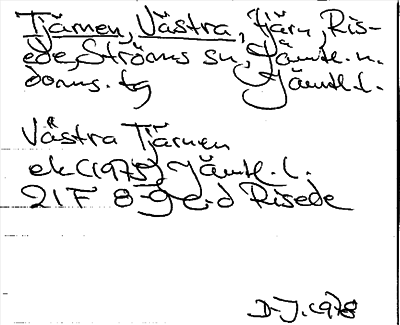 Tjärnen, Västra, tjärn, Ris-
ede, Ströms sn, Jämtl. n.
doms. tg Jämtl. l.
Västra Tjärnen
ek (1975) Jämtl. l.
21F 8-9 c-d Risede
D-J. 1978